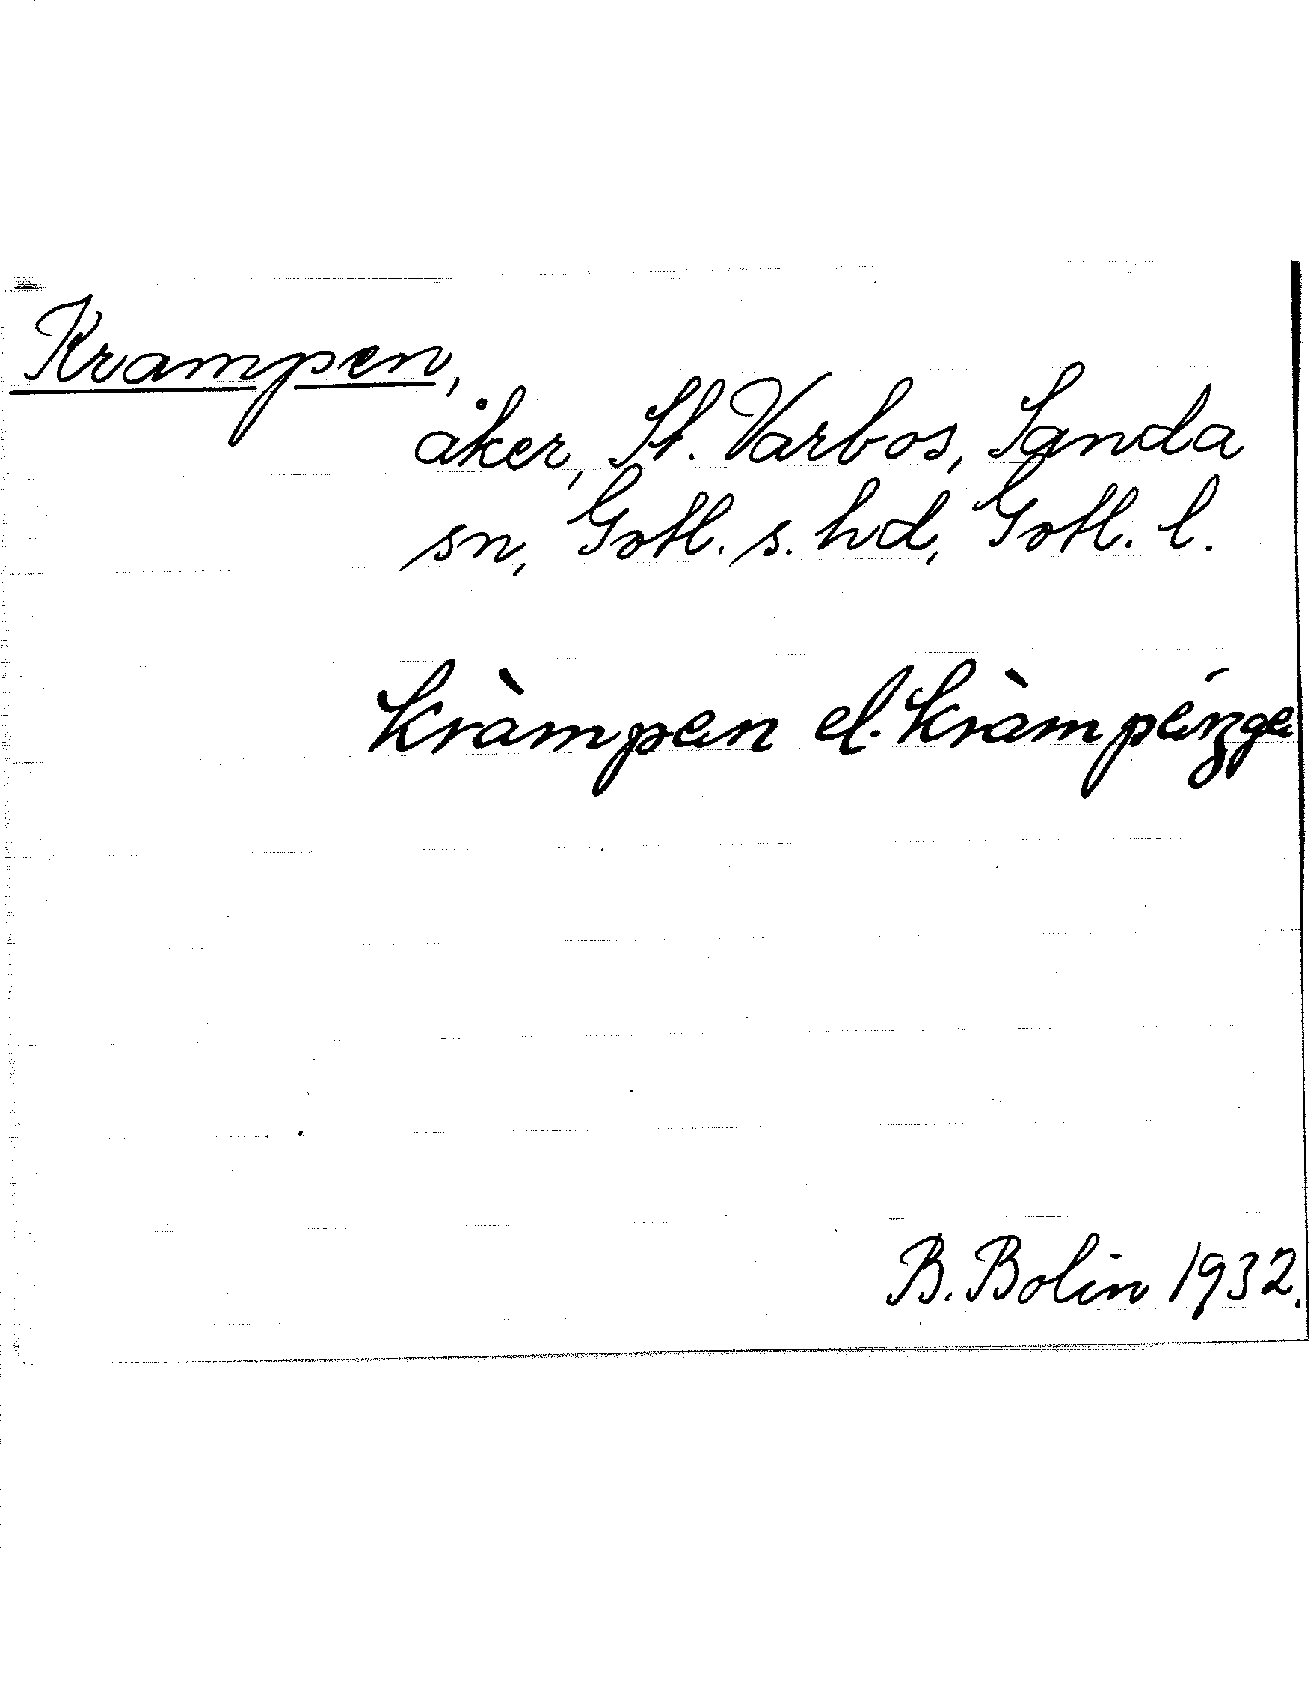 Krampen,
åker, St. Varbos, Sanda
sn, Gotl. s. hd, Gotl. l.
kràmpen el.
B. Bolin 1932.